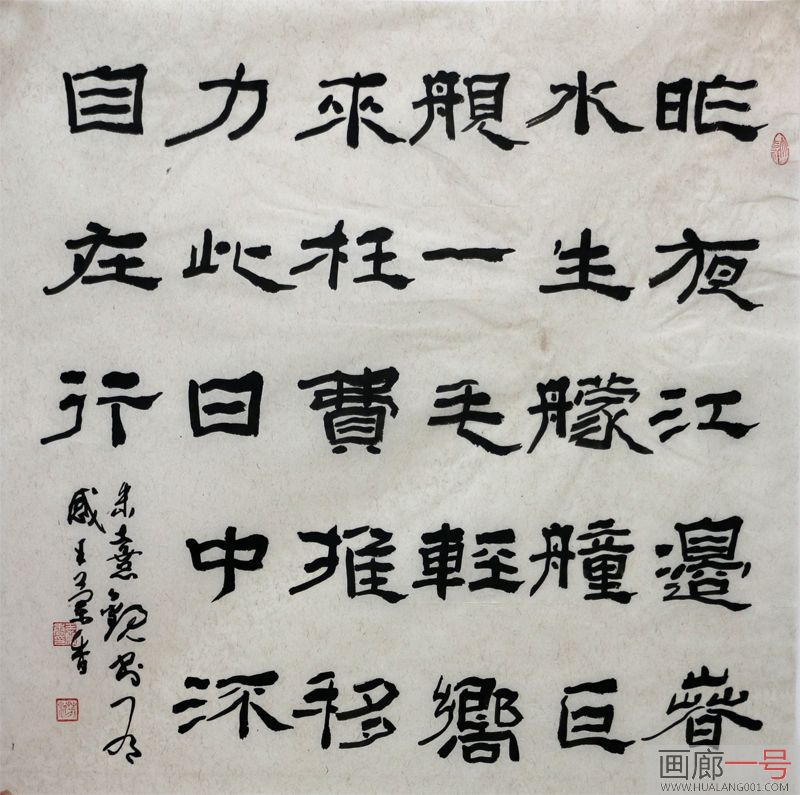 昨夜江邊春
水生艨艟巨
舰一毛輕嚮
來枉費推移
力此日中流
自在行
朱熹觀書有
感王香
画廊一号
WWW.HUALANG001.COM